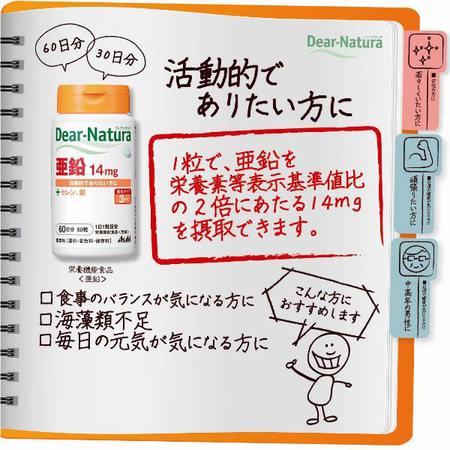 Dear-Natura
60日分
30日分
活動的で
ありたい方に
Dear-Natura
亜鉛 14mg
活動的でありたい方に
+セレン、銅
60日分 60粒
Asahi
栄養機能食品
<亜鉛>
1粒で、亜鉛を
栄養素等表示基準値比
の2倍にあたる14mg
を摂取できます。
□食事のバランスが気になる方に
□海藻類不足
□毎日の元気が気になる方に
こんな方に
おすすめします
若々しくいたい方に
頑張りたい方に
中高年の男性に